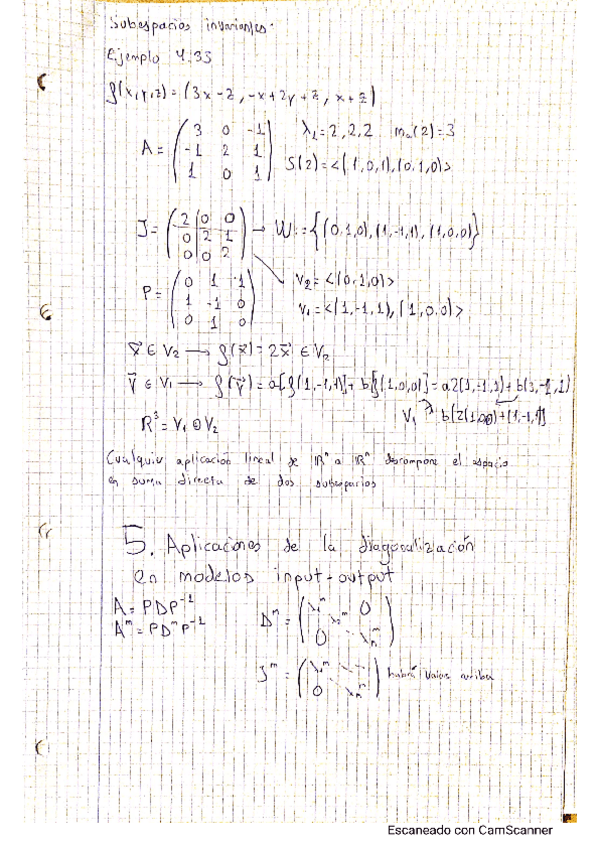 Subespacios invariantes.
Ejemplo 4.35
f(x,y,z) = (3x-z, -x+2y+z, x+z)
A = ( 3 0 -1 ) λ₁ = 2,2,2 mₐ(2) = 3
( -1 2 1 )
( 1 0 1 ) S(2) = <(1,0,1),(0,1,0)>
J = ( 2 | 0 0 ) → W = {(0,1,0),(1,-1,1),(1,0,0)}
( 0 | 2 1 )
( 0 | 0 2 )
P = ( 0 1 1 ) V₂ = <(0,1,0)>
( 1 -1 0 ) V₁ = <(1,-1,1),(1,0,0)>
( 0 1 0 )
x⃗ ∈ V₂ → f(x⃗) = 2x⃗ ∈ V₂
v⃗ ∈ V₁ → f(v⃗) = a[f(1,-1,1)] + b[f(1,0,0)] = a2(1,-1,1) + b(3,-1,1)
V₁ b[2(1,0,0)+(1,-1,1)]
R³ = V₁ ⊕ V₂
Cualquier aplicación lineal de Rⁿ a Rⁿ descompone el espacio
en suma directa de dos subespacios
5. Aplicaciones de la diagonalización
en modelos input-output
A = PDP⁻¹
Aᵐ = PDᵐP⁻¹
Dᵐ = ( λ₁ᵐ 0 )
( λ₂ᵐ )
( 0 λₙᵐ )
Jᵐ = ( λ₁ᵐ ) habrá valores arriba
( 0 λₙᵐ )
Escaneado con CamScanner